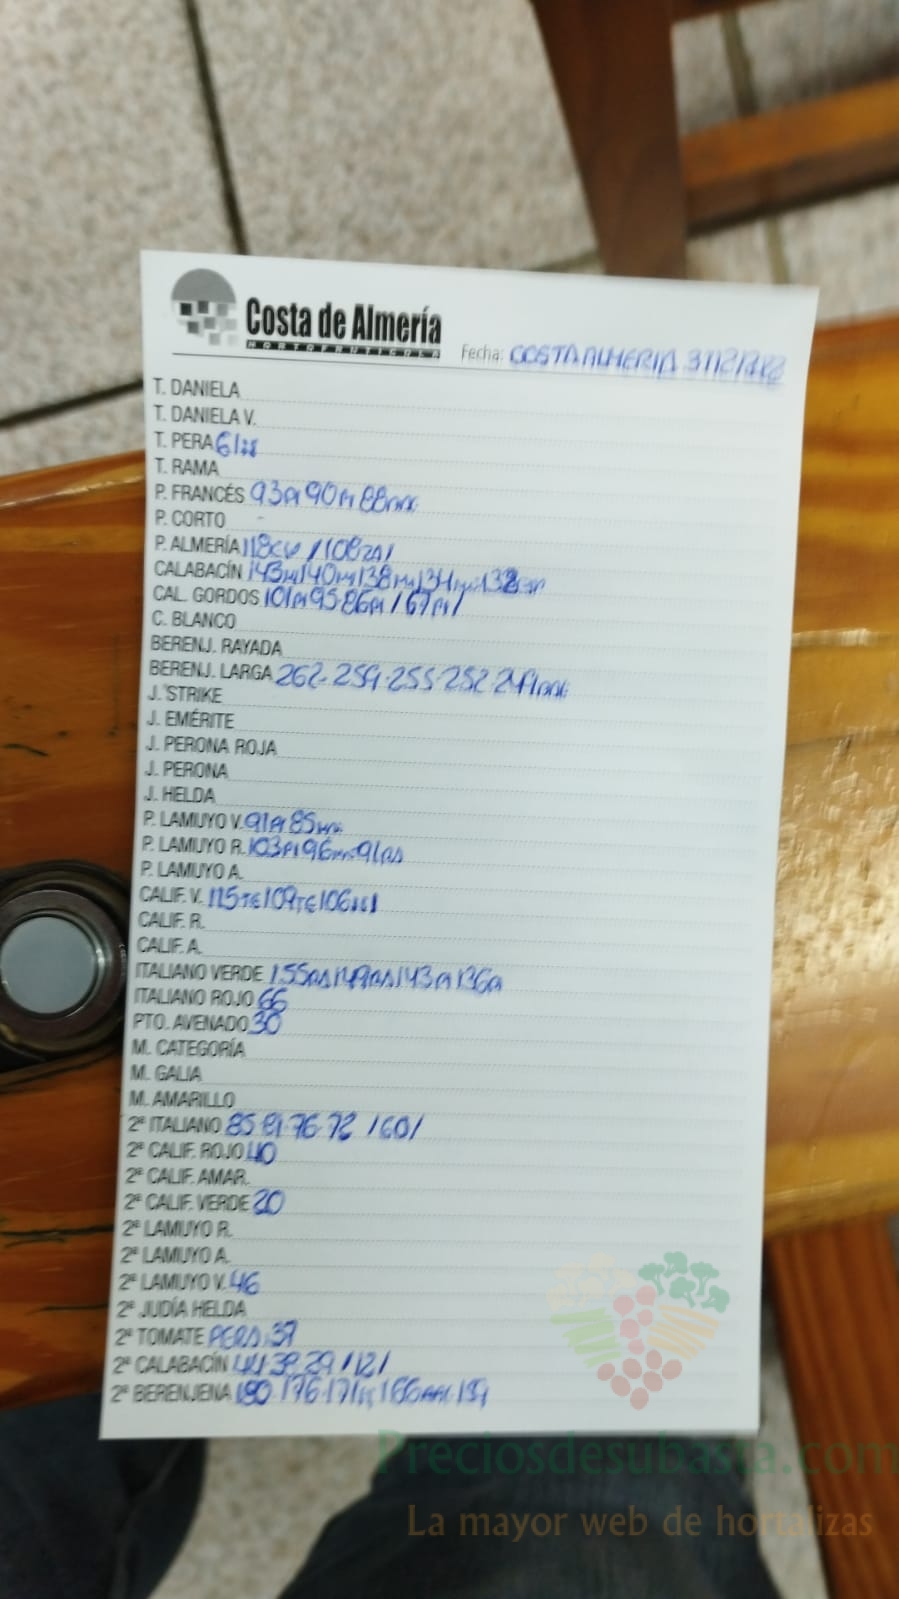 Costa de Almería
HORTOFRUTICOLA
Fecha: COSTA ALMERIA 31/2/
T. DANIELA
T. DANIELA V.
T. PERA 61
T. RAMA
P. FRANCÉS 93 90 88
P. CORTO -
P. ALMERÍA 118 /108 /
CALABACÍN 143 140 138 134 132
CAL. GORDOS 101 95-86 /67 /
C. BLANCO
BERENJ. RAYADA
BERENJ. LARGA 262-259-255-252-249
J. STRIKE
J. EMÉRITE
J. PERONA ROJA
J. PERONA
J. HELDA
P. LAMUYO V. 91 85
P. LAMUYO R. 103 96 91
P. LAMUYO A.
CALIF. V. 115 109 106
CALIF. R.
CALIF. A.
ITALIANO VERDE 155 149 143 136
ITALIANO ROJO 66
PTO. AVENADO 30
M. CATEGORÍA
M. GALIA
M. AMARILLO
2ª ITALIANO 85-81-76-72 /60/
2ª CALIF. ROJO 40
2ª CALIF. AMAR.
2ª CALIF. VERDE 20
2ª LAMUYO R.
2ª LAMUYO A.
2ª LAMUYO V. 46
2ª JUDÍA HELDA
2ª TOMATE PERA 37
2ª CALABACÍN 44-38-29 /12/
2ª BERENJENA 180-176-171 166
Preciosdesubasta.com
La mayor web de hortalizas